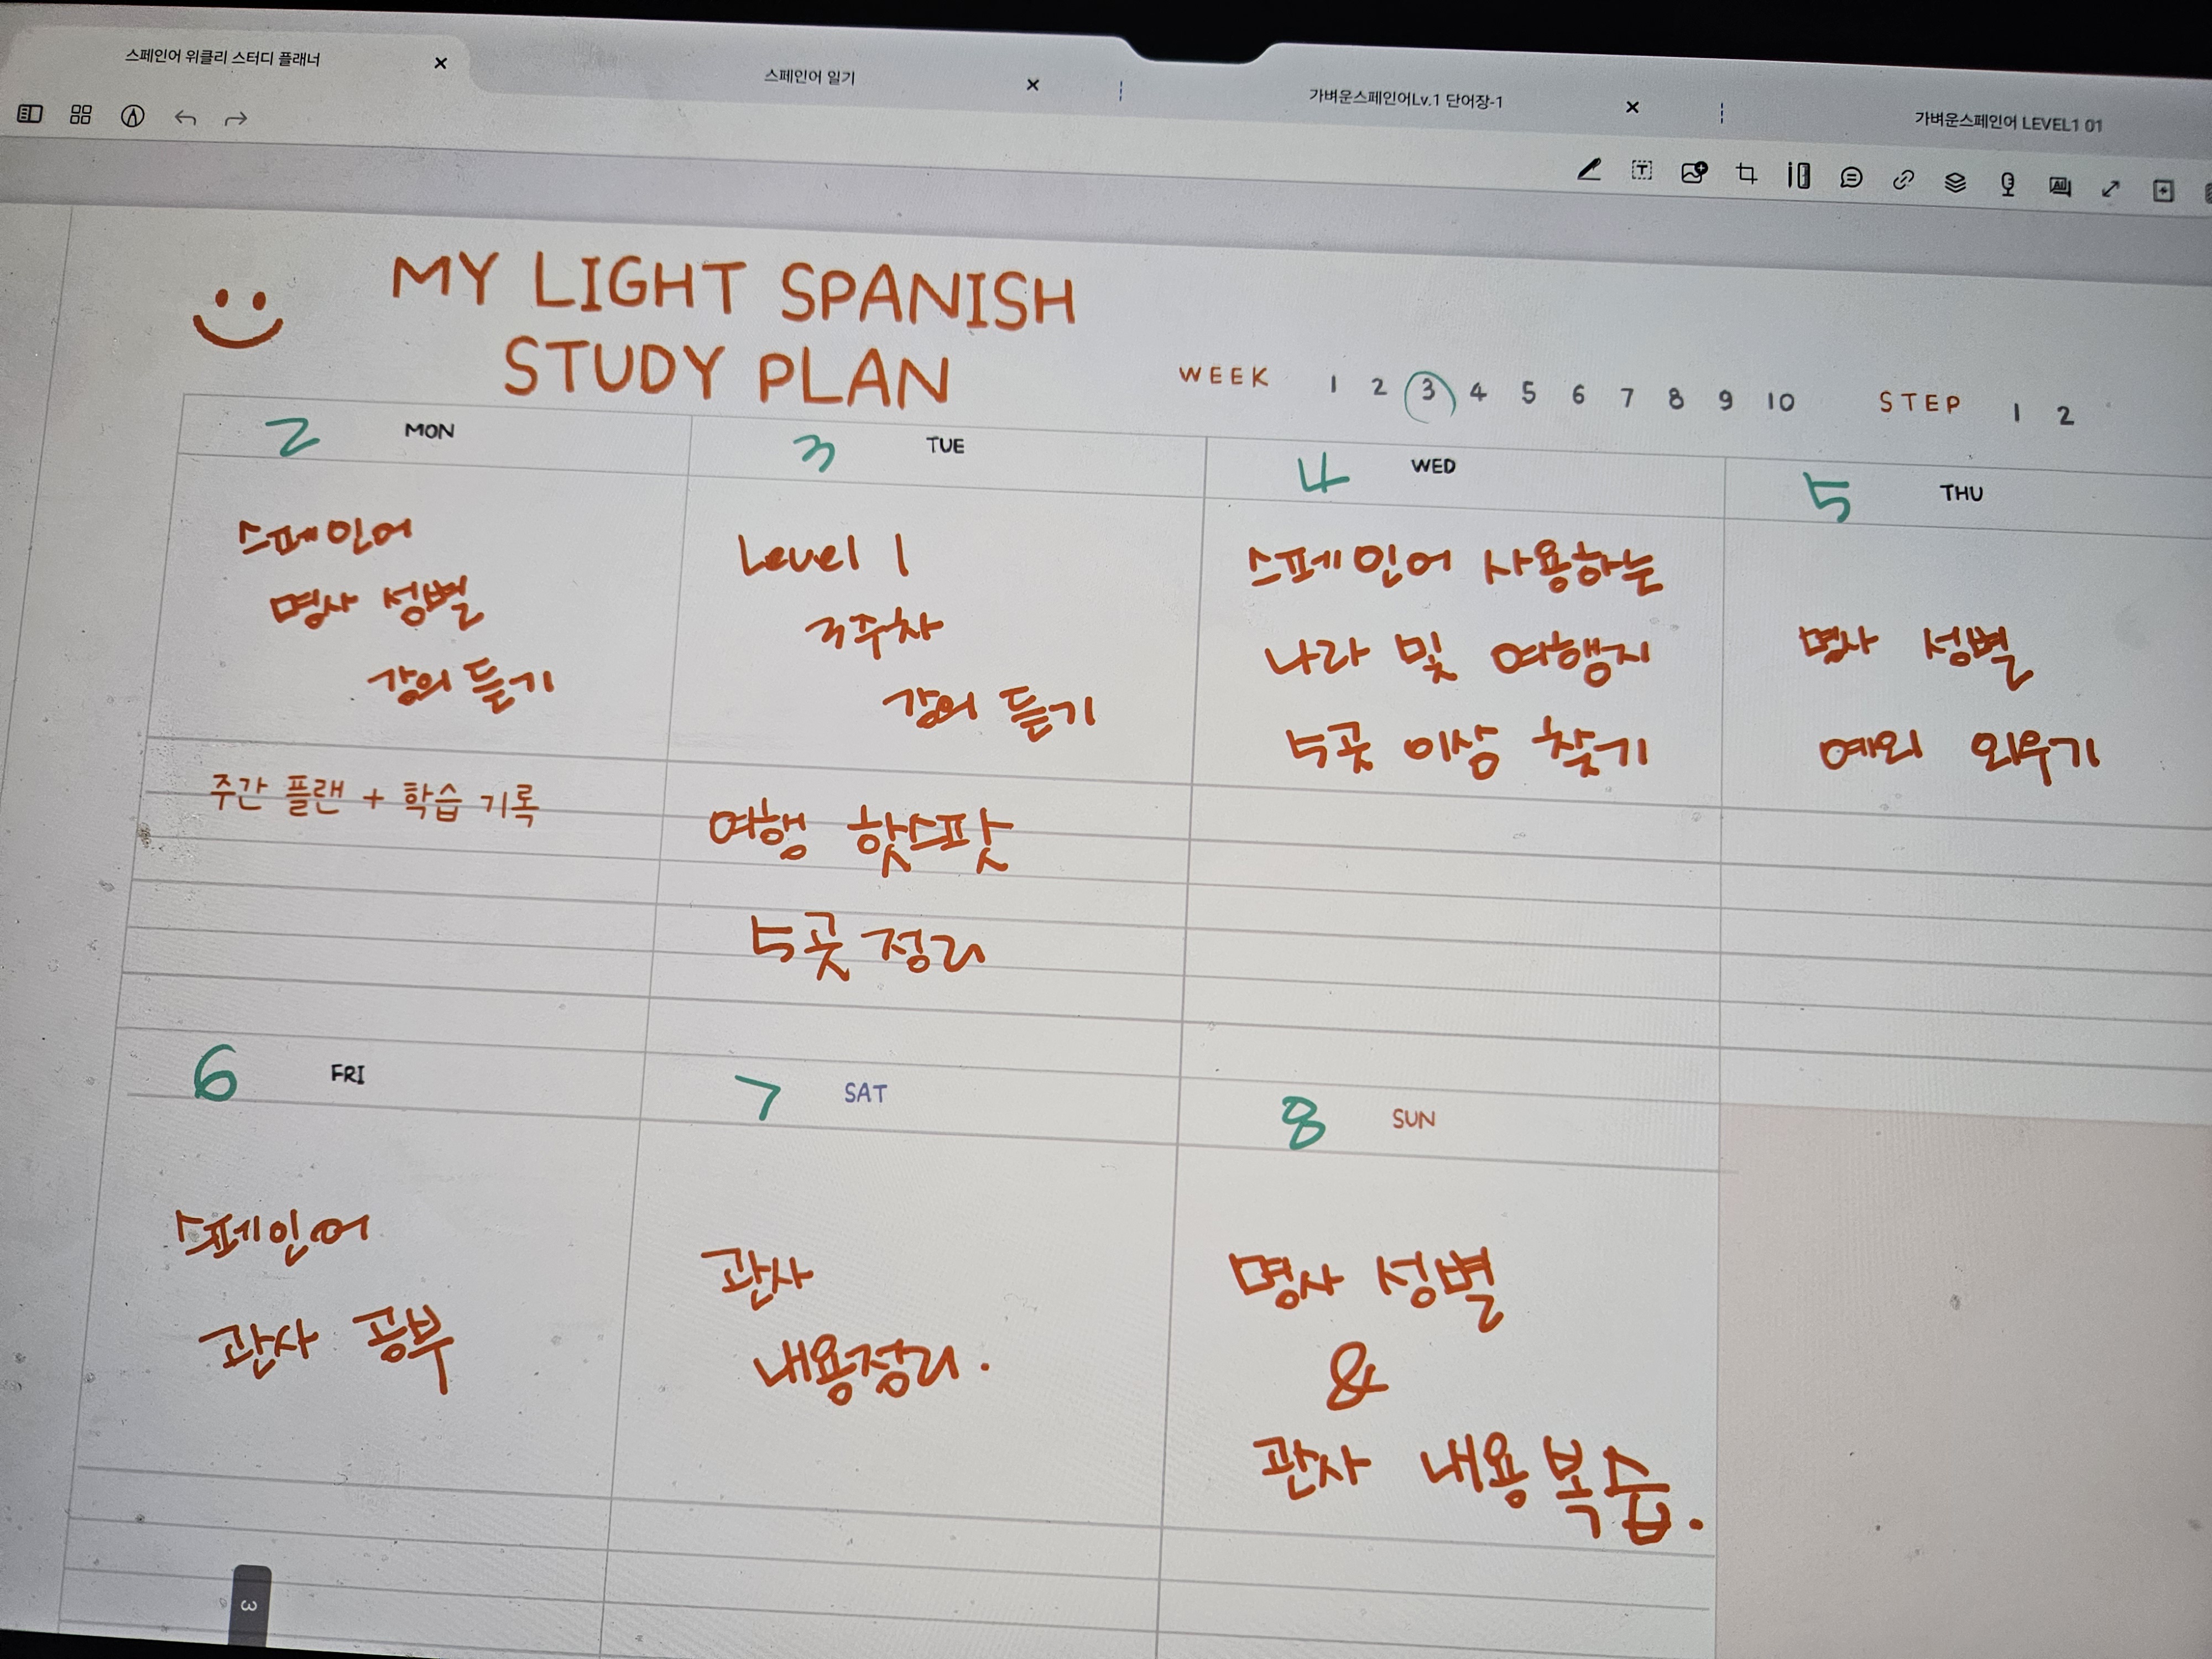 스페인어 위클리 스터디 플래너
스페인어 일기
가벼운스페인어Lv.1 단어장-1
가벼운스페인어 LEVEL1 01
MY LIGHT SPANISH
STUDY PLAN
WEEK 1 2 3 4 5 6 7 8 9 10 STEP 1 2
2 MON
스페인어
명사 성별
강의 듣기
주간 플랜 + 학습 기록
3 TUE
Level 1
3주차
강의 듣기
여행 핫스팟
5곳 정리
4 WED
스페인어 사용하는
나라 및 여행지
5곳 이상 찾기
5 THU
명사 성별
예외 외우기
6 FRI
스페인어
관사 공부
7 SAT
관사
내용정리.
8 SUN
명사 성별
&
관사 내용복습.
3